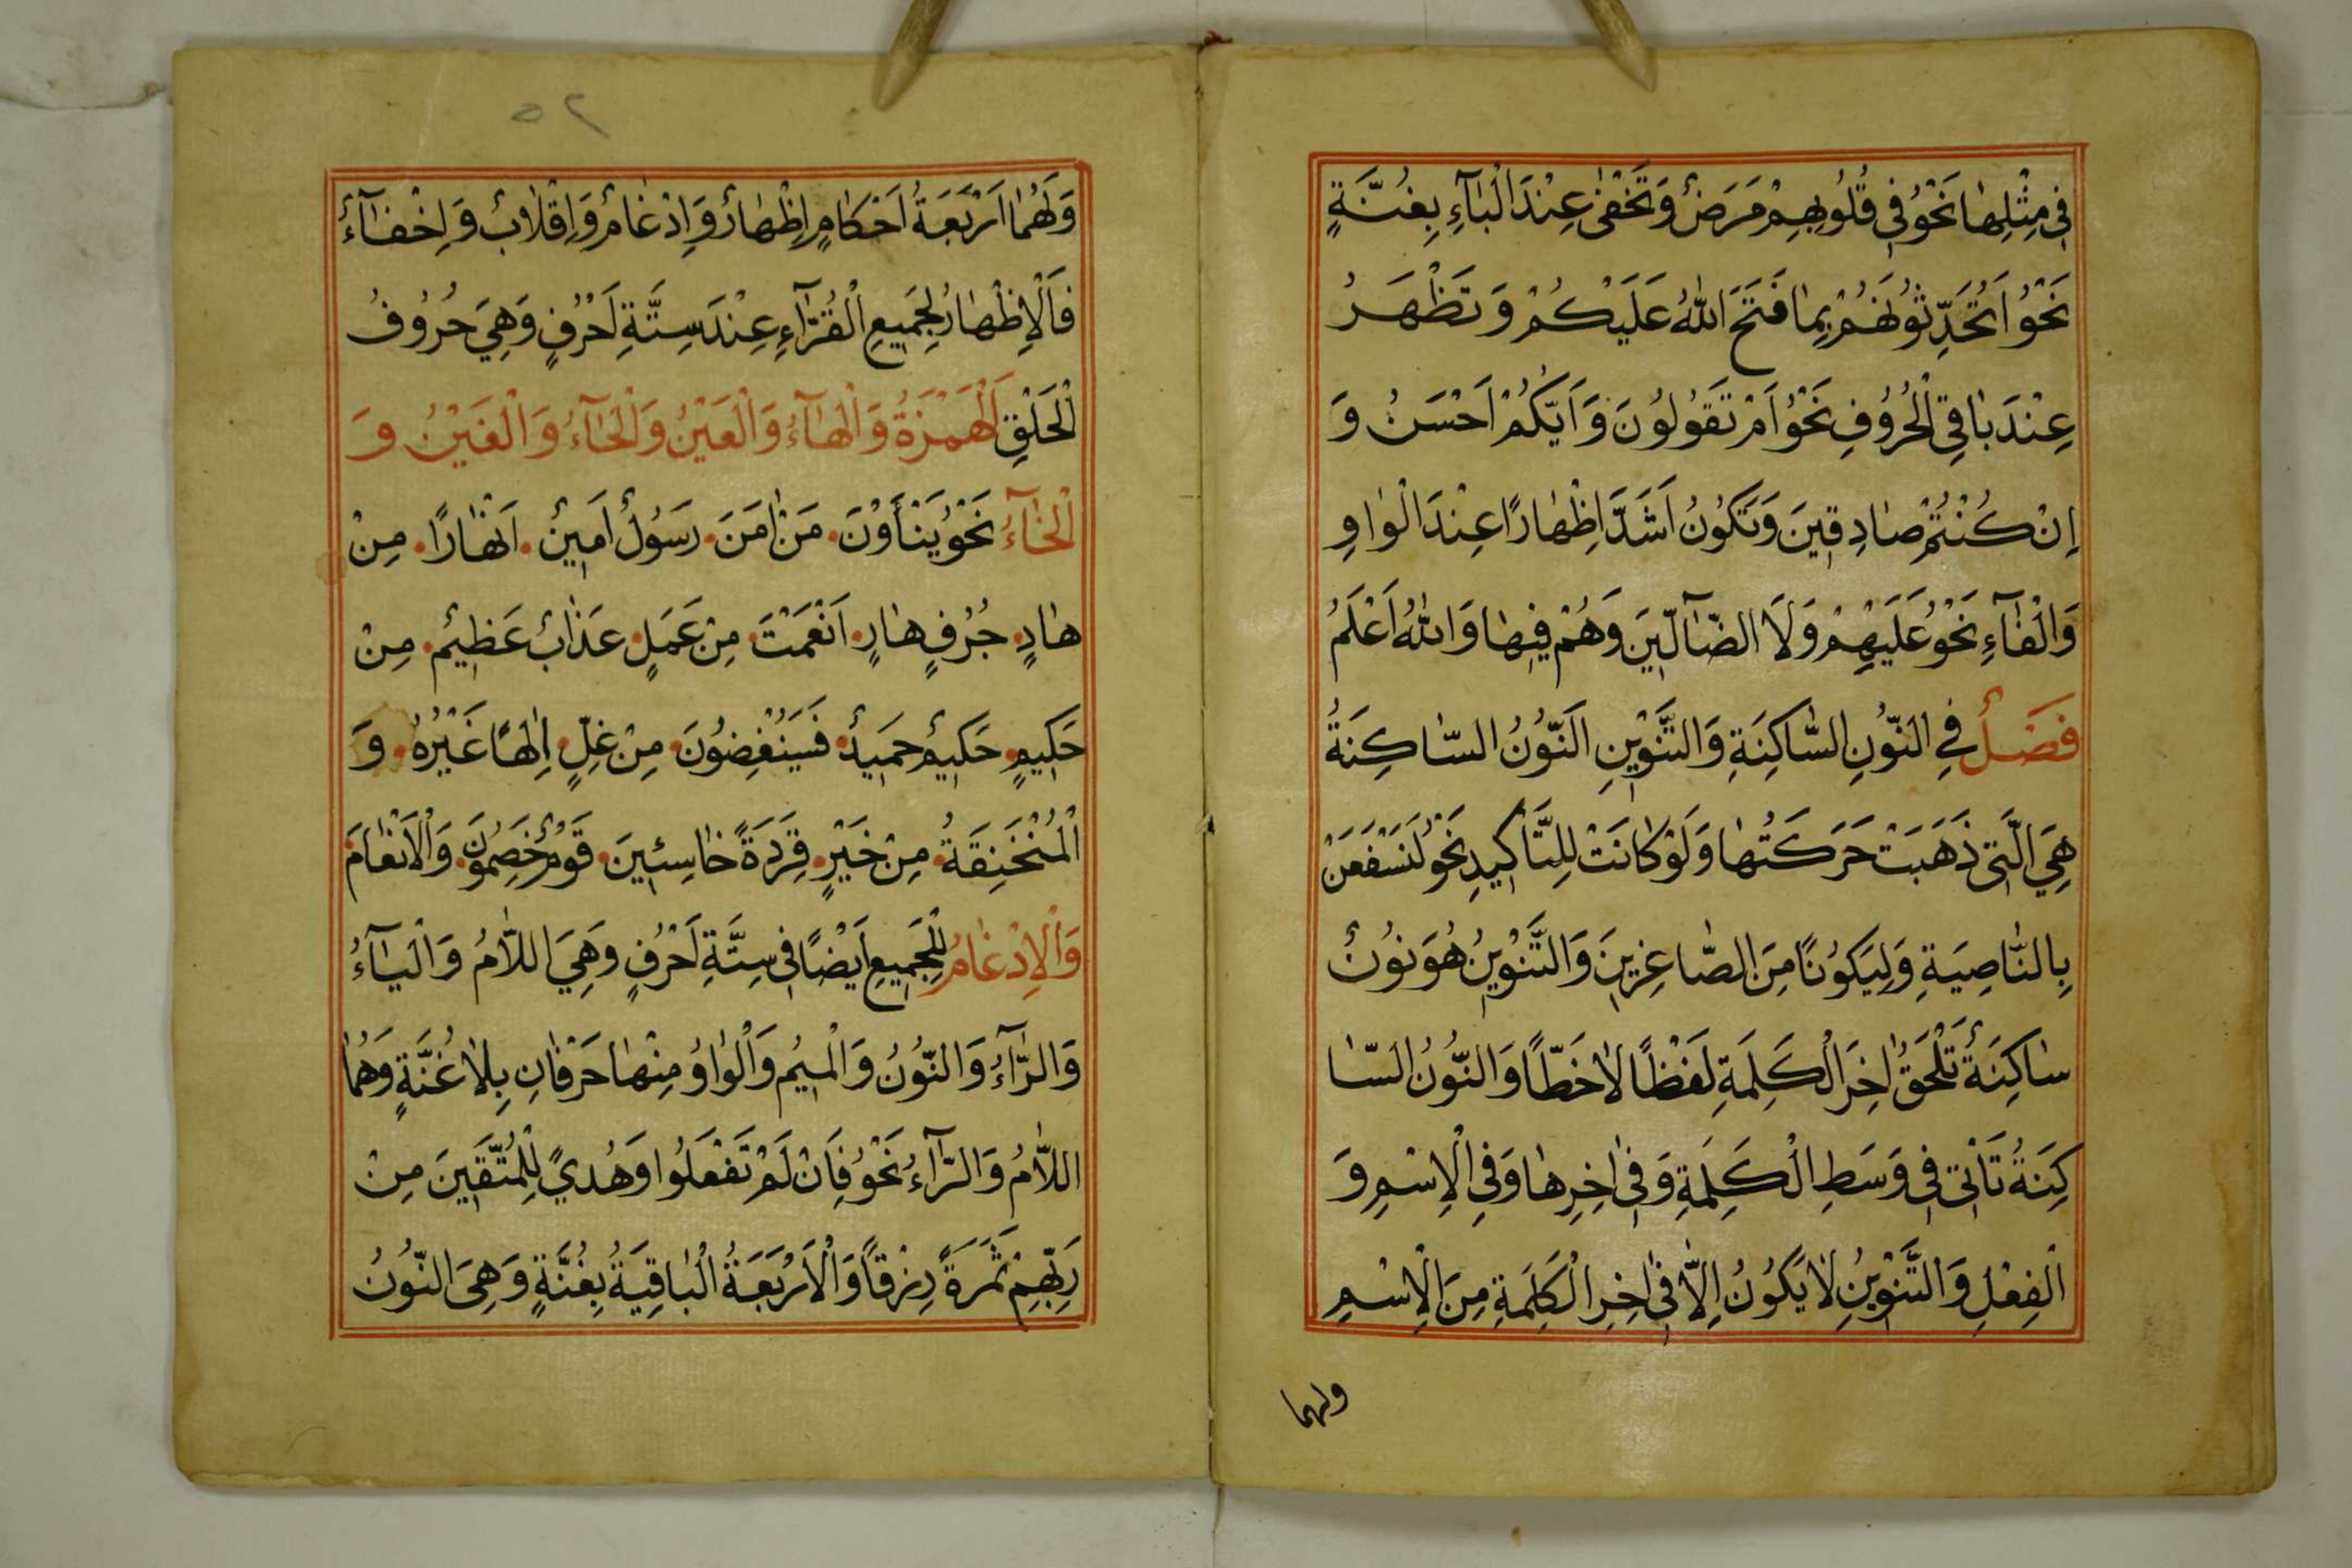 فِي مِثْلِهَا نَحْوُ فِي قُلُوبِهِمْ مَرَضٌ وَتَخْفٰى عِنْدَ الْبَآءِ بِغُنَّةٍ
نَحْوُ اَتُحَدِّثُونَهُمْ بِمَا فَتَحَ اللّٰهُ عَلَيْكُمْ وَتَظْهَرُ
عِنْدَ بَاقِي الْحُرُوفِ نَحْوُ اَمْ تَقُولُونَ وَاَيُّكُمْ اَحْسَنُ وَ
اِنْ كُنْتُمْ صَادِقِينَ وَتَكُونُ اَشَدَّ اِظْهَارًا عِنْدَ الْوَاوِ
وَالْفَآءِ نَحْوُ عَلَيْهِمْ وَلَا الضَّآلِّينَ وَهُمْ فِيهَا وَاللّٰهُ اَعْلَمُ
فَصْلٌ فِي النُّونِ السَّاكِنَةِ وَالتَّنْوِينِ اَلنُّونُ السَّاكِنَةُ
هِيَ الَّتِي ذَهَبَتْ حَرَكَتُهَا وَلَوْ كَانَتْ لِلتَّاْكِيدِ نَحْوُ لَنَسْفَعَنْ
بِالنَّاصِيَةِ وَلَيَكُونًا مِنَ الصَّاغِرِينَ وَالتَّنْوِينُ هُوَ نُونٌ
سَاكِنَةٌ تَلْحَقُ اٰخِرَ الْكَلِمَةِ لَفْظًا لَا خَطًّا وَالنُّونُ السَّا
كِنَةُ تَاْتِي فِي وَسَطِ الْكَلِمَةِ وَفِي اٰخِرِهَا وَفِي الْاِسْمِ وَ
الْفِعْلِ وَالتَّنْوِينُ لَا يَكُونُ اِلَّا فِي اٰخِرِ الْكَلِمَةِ مِنَ الْاِسْمِ
ولهما
٥٢
وَلَهُمَا اَرْبَعَةُ اَحْكَامٍ اِظْهَارٌ وَاِدْغَامٌ وَاِقْلَابٌ وَاِخْفَآءٌ
فَالْاِظْهَارُ لِجَمِيعِ الْقُرَّآءِ عِنْدَ سِتَّةِ اَحْرُفٍ وَهِيَ حُرُوفُ
الْحَلْقِ اَلْهَمْزَةُ وَالْهَآءُ وَالْعَيْنُ وَالْحَآءُ وَالْغَيْنُ وَ
الْخَآءُ نَحْوُ يَنْأَوْنَ. مَنْ اٰمَنَ. رَسُولٌ اَمِينٌ. اَنْهَارًا. مِنْ
هَادٍ. جُرُفٍ هَارٍ. اَنْعَمْتَ. مِنْ عَمَلٍ. عَذَابٌ عَظِيمٌ. مِنْ
حَكِيمٍ. حَكِيمٌ حَمِيدٌ. فَسَيُنْغِضُونَ. مِنْ غِلٍّ. اِلٰهًا غَيْرَهُ. وَ
الْمُنْخَنِقَةُ. مِنْ خَيْرٍ. قِرَدَةً خَاسِئِينَ. قَوْمٌ خَصِمُونَ. وَالْاَنْعَامَ.
وَالْاِدْغَامُ لِلْجَمِيعِ اَيْضًا فِي سِتَّةِ اَحْرُفٍ وَهِيَ اللَّامُ وَالْيَآءُ
وَالرَّآءُ وَالنُّونُ وَالْمِيمُ وَالْوَاوُ مِنْهَا حَرْفَانِ بِلَا غُنَّةٍ وَهُمَا
اللَّامُ وَالرَّآءُ نَحْوُ فَاِنْ لَمْ تَفْعَلُوا وَهُدًي لِلْمُتَّقِينَ مِنْ
رَبِّهِمْ ثَمَرَةً رِزْقًا وَالْاَرْبَعَةُ الْبَاقِيَةُ بِغُنَّةٍ وَهِيَ النُّونُ